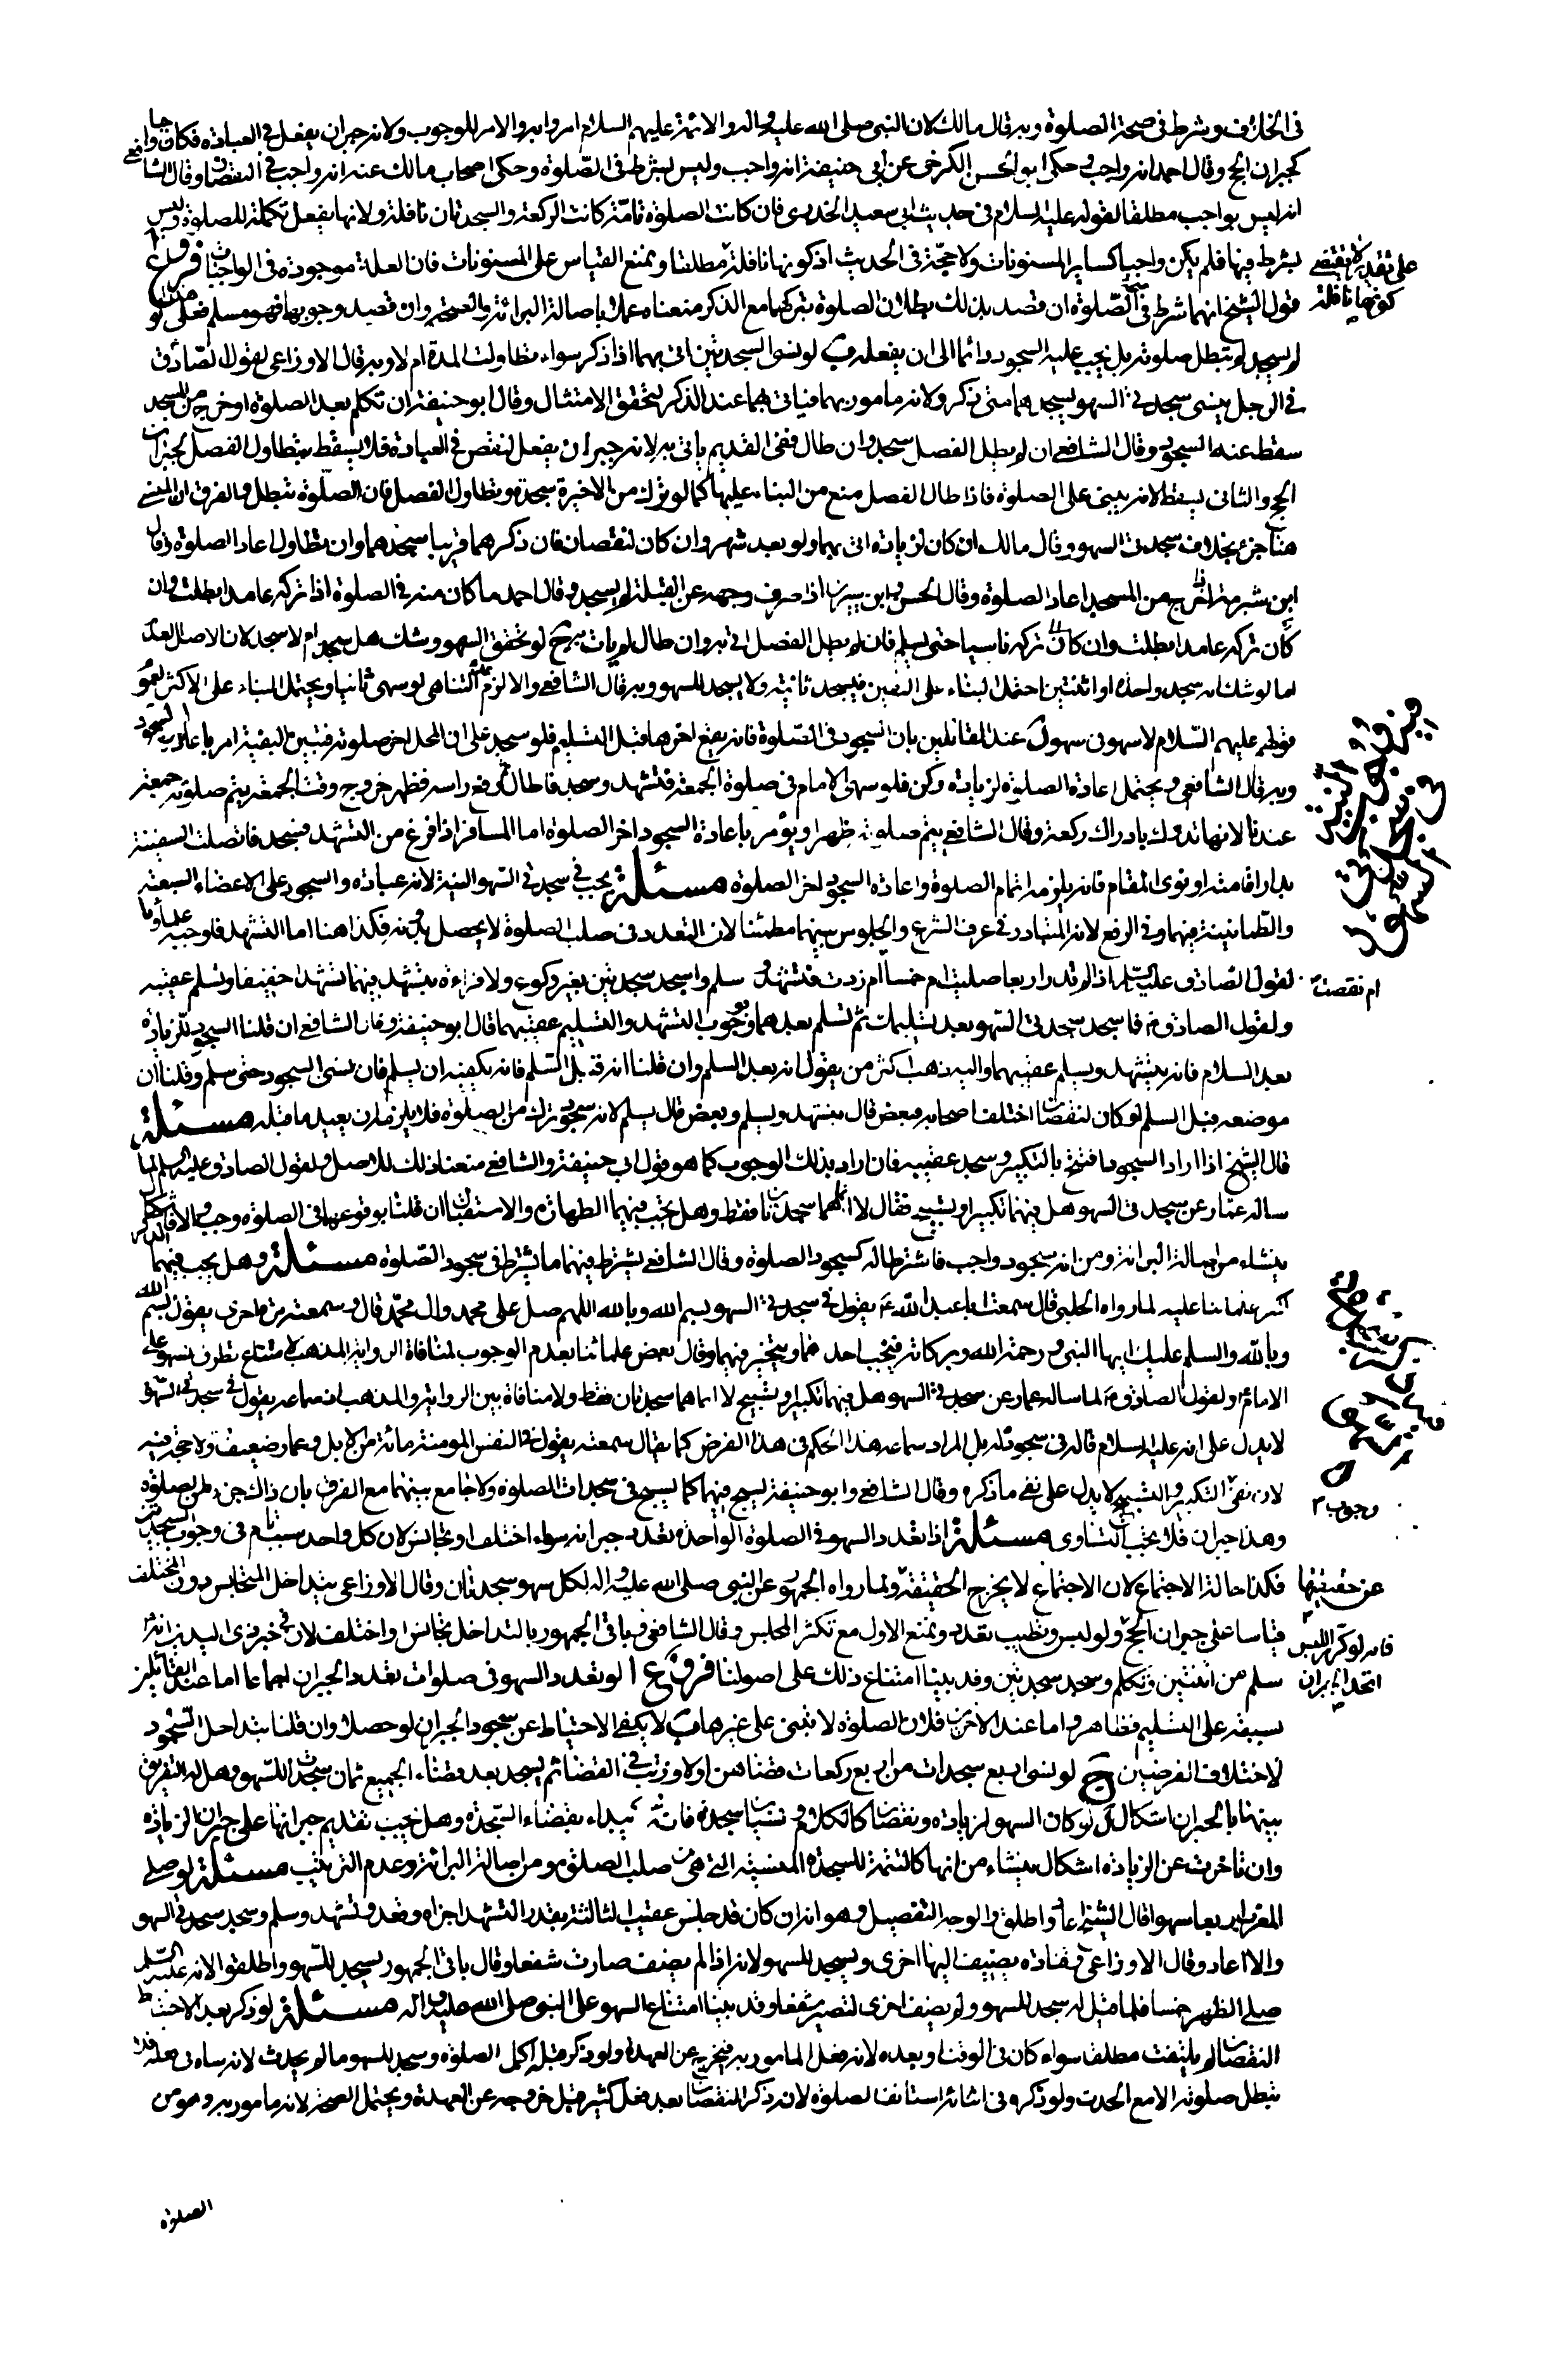 في الخلاف وشرط في صحة الصلوة وبه قال مالك لان النبي صلى الله عليه واله والائمة عليهم السلام امروا به والامر للوجوب ولانه جبران يفعل في العبادة فكان واجبا
كجبران الحج وقال احمد انه واجب وحكى ابو الحسن الكرخي عن ابي حنيفة انه واجب وليس بشرط في الصلوة وحكى اصحاب مالك عنه انه واجب في النقصان وقال الشافعي
انه ليس بواجب مطلقا لقوله عليه السلام في حديث ابي سعيد الخدري فان كانت الصلوة تامة كانت الركعة والسجدتان نافلة ولانها يفعل تكملة للصلوة وليس
بشرط فيها فلم يكن واجبا كساير المسنونات ولا حجة في الحديث اذ كونها نافلة مطلقا ونمنع القياس على المسنونات فان العلة موجودة في الواجبات فروع ا
قول الشيخ انهما شرط في صحة الصلوة ان قصد بذلك بطلان الصلوة بتركها مع الذكر منعناه عملا باصالة البرائة والصحة وان قصد وجوبها فهو مسلم فعلى هذا لو
لم يسجد لم تبطل صلوته بل يجب عليه السجود دائما الى ان يفعله ب لو نسي السجدتين اتى بهما اذا ذكر سواء تطاولت المدة ام لا وبه قال الاوزاعي لقول الصادق
في الرجل ينسى سجدتي السهو يسجدهما متى ذكر ولانه مامور بهما فياتي بهما عند الذكر لتحقق الامتثال وقال ابو حنيفة ان تكلم بعد الصلوة او خرج من المسجد
سقط عنه السجود وقال الشافعي ان لم يطل الفصل سجد وان طال ففي القديم ياتي به لانه جبران يفعل لنقص في العبادة فلا يسقط بتطاول الفصل كجبران
الحج والثاني يسقط لانه يبنى على الصلوة فاذا طال الفصل منع من البناء عليها كما لو ترك من الاخيرة سجدة وتطاول الفصل فان الصلوة تبطل والفرق ان المنسي
هنا جزء بخلاف سجدتي السهو وقال مالك ان كان لزيادة اتى بهما ولو بعد شهر وان كان لنقصان فان ذكرهما قريبا سجدهما وان تطاول اعاد الصلوة وقال
ابن شبرمة اذا خرج من المسجد اعاد الصلوة وقال الحسن وابن سيرين اذا صرف وجهه عن القبلة لم يسجد وقال احمد ما كان منه في الصلوة اذا تركه عامدا بطلت وان
كان تركه عامدا بطلت وان كان تركه ناسيا حتى يسلم فان لم يطل الفصل اتى به وان طال لم يات به ج لو تحقق السهو وشك هل سجد ام لا سجد لان الاصل العدم
اما لو شك انه سجد واحدة او اثنتين احتمل البناء على اليقين فيسجد ثانية ولا يسجد للسهو وبه قال الشافعي والا لزم عدم التناهي لو سهى ثانيا ويحتمل البناء على الاكثر لعموم
قولهم عليهم السلام لا سهو في سهو د عند القائلين بان السجود في الصلوة فانه يقع اخرها قبل التسليم فلو سجد على ان المحل اخر صلوته فتبين البقية امر باعادة السجود
وبه قال الشافعي ويحتمل اعادة الصلوة لزيادة ركن فلو سهى الامام في صلوة الجمعة فتشهد وسجد فاطال ورفع راسه فظهر خروج وقت الجمعة يتم صلوته جمعة
عندنا لانها تدرك بادراك ركعة وقال الشافعي يتم صلوته ظهرا ويؤمر باعادة السجود اخر الصلوة اما المسافر اذا فرغ من التشهد فسجد فاتصلت السفينة
بدار اقامته او نوى المقام فانه يلزمه اتمام الصلوة واعادة السجود اخر الصلوة مسئلة يجب في سجدتي السهو النية لانه عبادة والسجود على الاعضاء السبعة
والطمانينة فيهما وفي الرفع لانه المتبادر في عرف الشرع والجلوس بينهما مطمئنا لان التعدد في صلب الصلوة لا يحصل بدونه فكذا هنا اما التشهد فاوجبه علماؤنا
لقول الصادق عليه السلام اذا لم تدر اربعا صليت ام خمسا ام زدت فتشهد وسلم واسجد سجدتين بغير ركوع ولا قراءة يتشهد فيهما تشهدا خفيفا ويسلم عقيبه
ولقول الصادق ع فاسجد سجدتي السهو بعد تسليمك ثم تسلم بعدهما وبوجوب التشهد والتسليم عقيبهما قال ابو حنيفة وقال الشافعي ان قلنا السجود للزيادة
بعد السلام فانه يتشهد ويسلم عقيبهما واليه ذهب اكثر من يقول انه بعد السلم وان قلنا انه قبل السلم فانه يكفيه ان يسلم فان نسى السجود حتى سلم وقلنا ان
موضعه قبل السلم لو كان لنقصان اختلف اصحابه فبعض قال يتشهد ويسلم وبعض قال يسلم لانه سجود ترك من الصلوة فلا يلزمه ان يعيد ما قبله مسئلة
قال الشيخ اذا اراد السجود افتتح بالتكبير وسجد عقيبه فان اراد بذلك الوجوب كما هو قول ابي حنيفة والشافعي منعنا ذلك للاصل ولقول الصادق عليه السلم لما
ساله عمار عن سجدتي السهو هل فيهما تكبير او تسبيح فقال لا انهما سجدتان فقط وهل يجب فيهما الطهارة والاستقبال ان قلنا بوقوعهما في الصلوة وجب والا فاشكال
ينشاء من اصالة البرائة ومن انه سجود واجب فاشترطا له كسجود الصلوة وقال الشافعي يشترط فيهما ما يشترط في سجود الصلوة مسئلة وهل يجب فيهما الذكر
اكثر علمائنا عليه لما رواه الحلبي قال سمعت ابا عبد الله ع يقول في سجدتي السهو بسم الله وبالله اللهم صل على محمد وال محمد قال وسمعته مرة اخرى يقول بسم الله
وبالله والسلم عليك ايها النبي ورحمة الله وبركاته فيجب احدهما ويتخير فيهما وقال بعض علمائنا بعدم الوجوب لمنافاة الرواية المذهب لامتناع تطرق السهو على
الامام ولقول الصادق ع لما ساله عمار عن سجدتي السهو هل فيهما تكبير او تسبيح لا انما هما سجدتان فقط ولا منافاة بين الرواية والمذهب لان سماعه يقول في سجدتي السهو
لا يدل على انه عليه السلام قاله في سجود له بل المراد سماعه هذا الحكم في هذا الفرض كما يقال سمعته يقول في النفس المومنة مائة من الابل وعمار ضعيف ولا حجة فيه
لان نفي التكبير والتسبيح لا يدل على نفي ما ذكره وقال الشافعي وابو حنيفة يسبح فيهما كما يسبح في سجدات الصلوة ولا جامع بينهما مع الفرق بان ذاك جزء من الصلوة
وهذا جبران فلا يجب التساوي مسئلة اذا تعدد السهو في الصلوة الواحدة تعدد جبرانه سواء اختلف او تجانس لان كل واحد سبب تام في وجوب السجدتين
فكذا حالة الاجتماع لان الاجتماع لا يخرج الحقيقة ولما رواه الجمهور عن النبي صلى الله عليه واله لكل سهو سجدتان وقال الاوزاعي يتداخل المتجانس دون المختلف
قياسا على جبران الحج ولو لبس وتطيب تعدد ونمنع الاول مع تكثر المجلس وقال الشافعي وباقي الجمهور بالتداخل تجانس او اختلف لان في خبر ذي اليدين انه
سلم من اثنتين وتكلم وسجد سجدتين وقد بينا امتناع ذلك على اصولنا فروع ا لو تعدد السهو في صلوات تعدد الجبران اجماعا اما عند القائلين
بسبقه على التسليم فظاهر واما عند الاخرين فلان الصلوة لا تبنى على غيرها ب لا يكفي الاحتياط عن سجود الجبران لو حصلا وان قلنا بتداخل السجود
لاختلاف الفرضين ج لو نسى اربع سجدات من اربع ركعات قضاهن اولا ورتب في القضا ثم يسجد بعد قضاء الجميع ثمان سجدات للسهو وهل له التفريق
بينها بالجبران اشكال د لو كان السهو لزيادة ونقصان كالكلام ونسيان سجدة فانه يبداء بقضاء السجدة وهل يجب تقديم جبرانها على جبران الزيادة
وان تاخرت عن الزيادة اشكال ينشاء من انها كالتتمة للسجدة المنسية التي هي من صلب الصلوة ومن اصالة البرائة وعدم الترتيب مسئلة لو صلى
المغرب اربعا سهوا قال الشيخ اعاد واطلق والوجه التفصيل وهو انه ان كان قد جلس عقيب الثالثة بقدر التشهد اجزاه وقعد وتشهد وسلم وسجد سجدتي السهو
والا اعاد وقال الاوزاعي وقتادة يضيف اليها اخرى ويسجد للسهو لانه اذا لم يضف صارت شفعا وقال باقي الجمهور يسجد للسهو واطلقوا لانه عليه السلم
صلى الظهر خمسا فلما قيل له سجد للسهو ولم يضف اخرى لتصير شفعا وقد بينا امتناع السهو على النبي صلى الله عليه واله مسئلة لو ذكر بعد الاحتياط
النقصان لم يلتفت مطلقا سواء كان في الوقت او بعده لانه فعل المامور به فيخرج عن العهدة ولو ذكر قبله اكمل الصلوة وسجد للسهو ما لم يحدث لانه ساه في فعله فلا
تبطل صلوته الا مع الحدث ولو ذكره في اثنائه استانف الصلوة لان ذكر النقصان بعد فعل كثير قبل خروجه عن العهدة ويحتمل الصحة لانه مامور به وهو من
الصلوة
على تقدير لا يقتضي
كونها نافلة
ام نقصت
وجوب ٢
عن حقيقتها
فانه لو كرر اللبس
اتحد الجبران